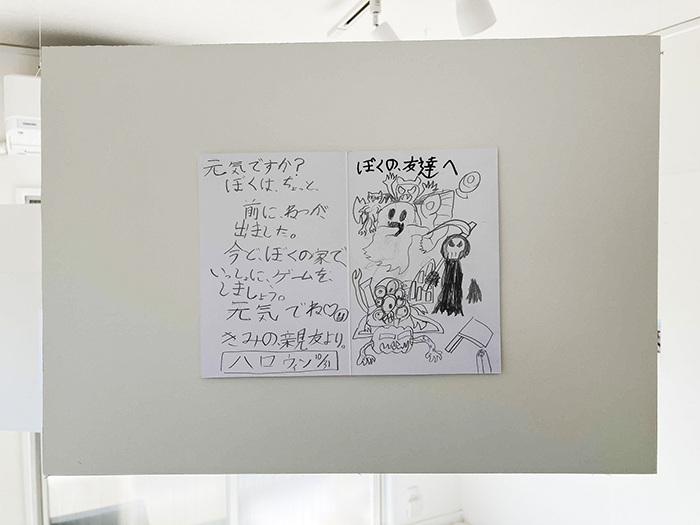 元気ですか？
ぼくは、ちょっと、
前に、ねつが
出ました。
今ど、ぼくの家で
いっしょに、ゲームを、
しましょう。
元気でね♡
きみの親友より。
ハロウィン10/31
ぼくの、友達へ